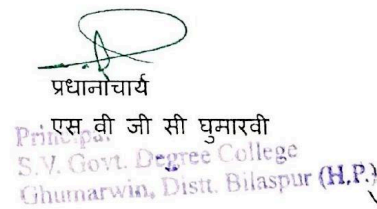 प्रधानाचार्य
एस वी जी सी घुमारवी
Principal
S.V. Govt. Degree College
Ghumarwin, Distt. Bilaspur (H.P.)